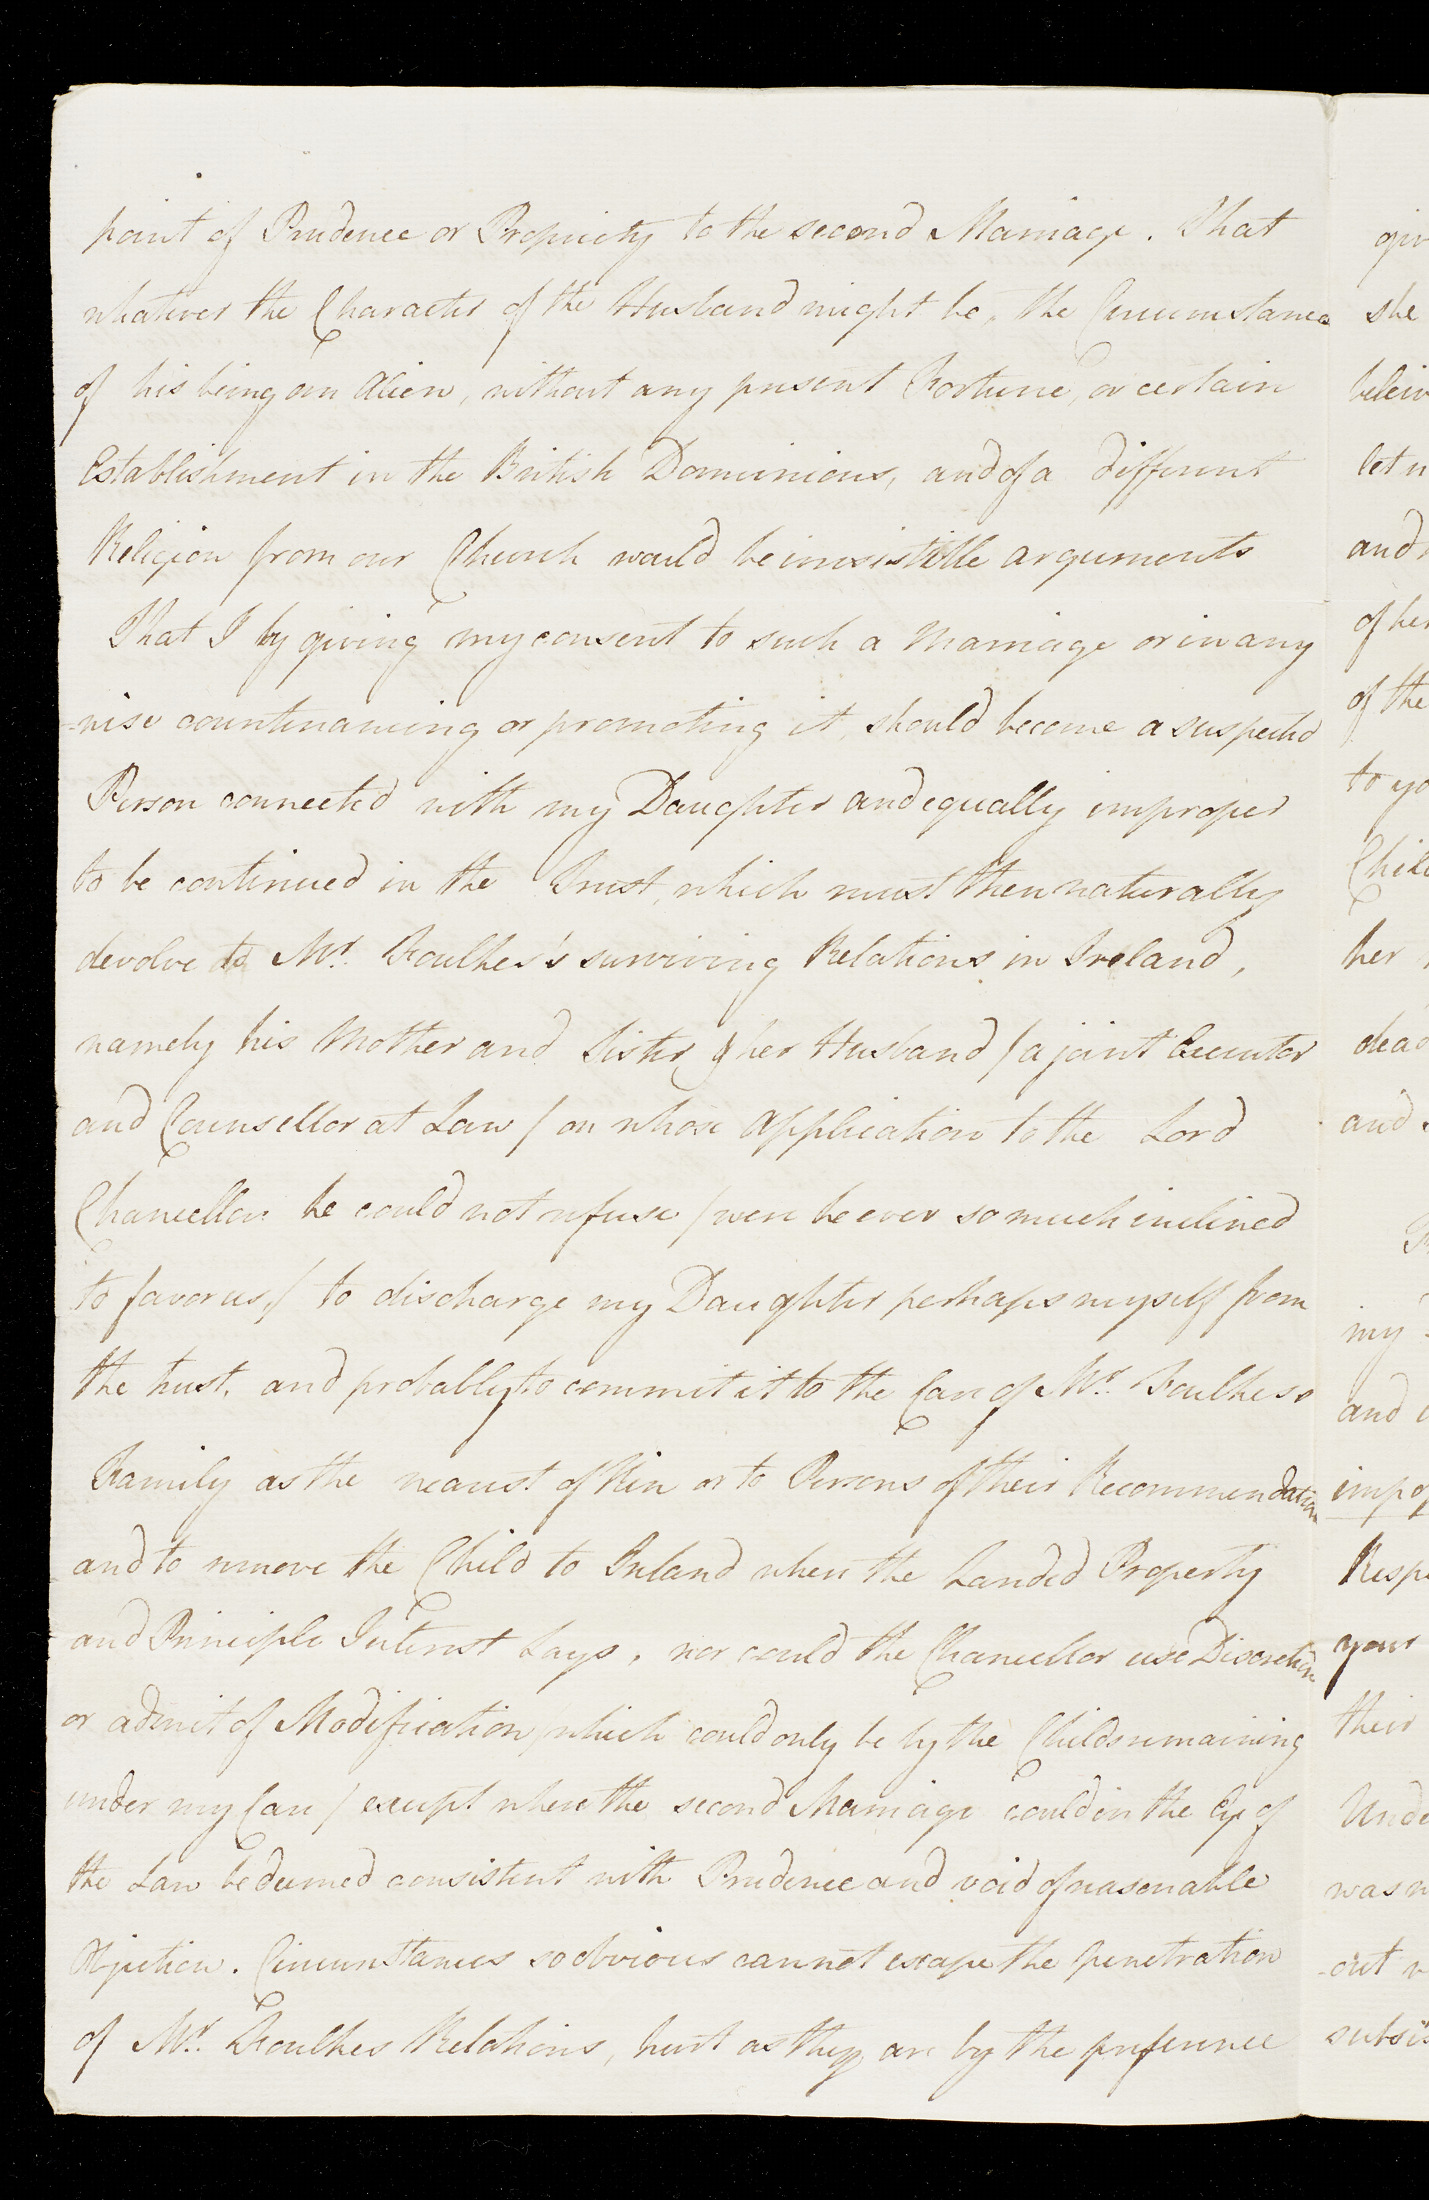 point of Prudence or Propriety to the second Marriage. That
whatever the Character of the Husband might be, the Circumstance
of his being an Alien, without any present Fortune, or certain
Establishment in the British Dominions, and of a different
Religion from our Church would be irresistible arguments
That I by giving my consent to such a Marriage or in any
-wise countenancing or promoting it, should become a suspected
Person connected with my Daughter and equally improper
to be continued in the Trust, which must then naturally
devolve to Mr. Foulkes's surviving Relations in Ireland,
namely his Mother and Sister & her Husband / a joint Executor
and Counsellor at Law / on whose application to the Lord
Chancellor he could not refuse / were he ever so much inclined
to favor us, / to discharge my Daughter perhaps myself from
the trust, and probably to commit it to the Care of Mr. Foulkes's
Family as the nearest of Kin or to Persons of their Recommendation
and to remove the Child to Ireland where the Landed Property
and Principle Interest Lays, nor could the Chancellor use Discretion
or admit of Modification, which could only be by the Childs remaining
under my Care / except where the second Marriage could in the Eye of
the Law be deemed consistent with Prudence and void of reasonable
Objection. Circumstances so obvious cannot escape the penetration
of Mr. Foulkes Relations, hurt as they are by the preference
she
and
of the
her
and
my
and
your
their